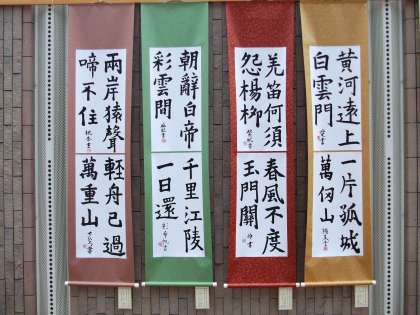 黄河遠上
白雲門
一片孤城
萬仞山
羌笛何須
怨楊柳
春風不度
玉門關
朝辭白帝
彩雲間
千里江陵
一日還
兩岸猿聲
啼不住
輕舟已過
萬重山